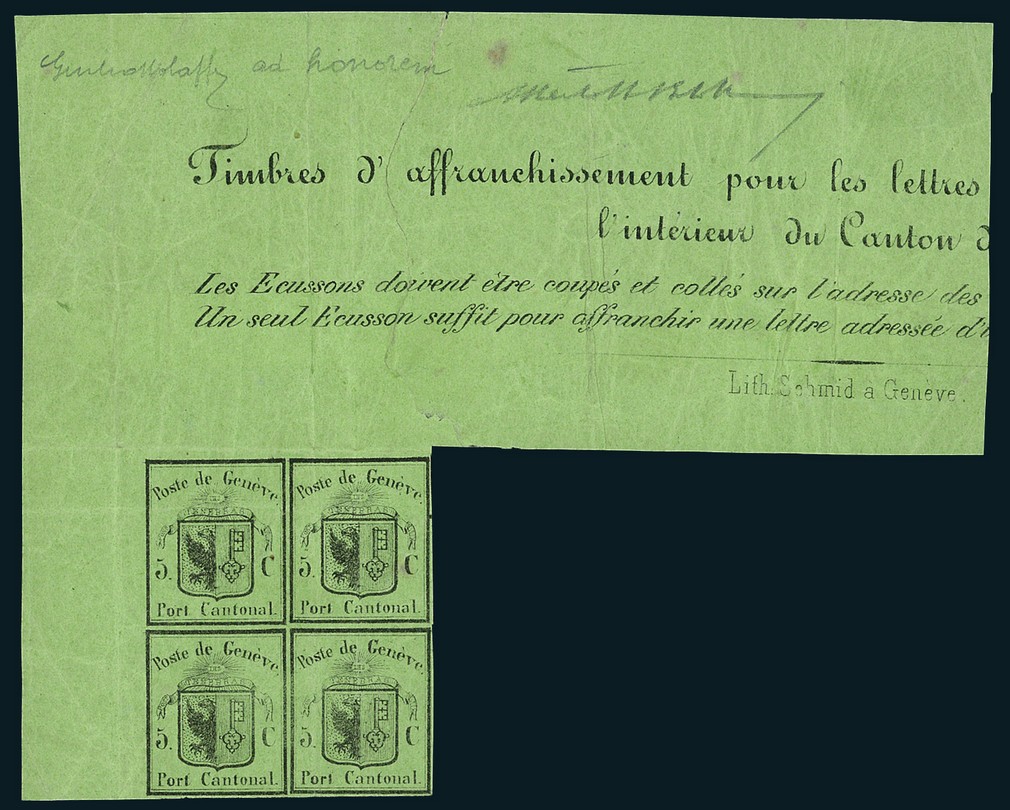 ad honorem
Timbres d'affranchissement pour les lettres
l'intérieur du Canton d
Les Ecussons doivent être coupés et collés sur l'adresse des
Un seul Ecusson suffit pour affranchir une lettre adressée d'u
Lith. Schmid a Genève.
Poste de Genève
TENEBRAS
5. C
Port Cantonal.
Poste de Genève
TENEBRAS
5. C
Port Cantonal.
Poste de Genève
TENEBRAS
5. C
Port Cantonal.
Poste de Genève
TENEBRAS
5. C
Port Cantonal.